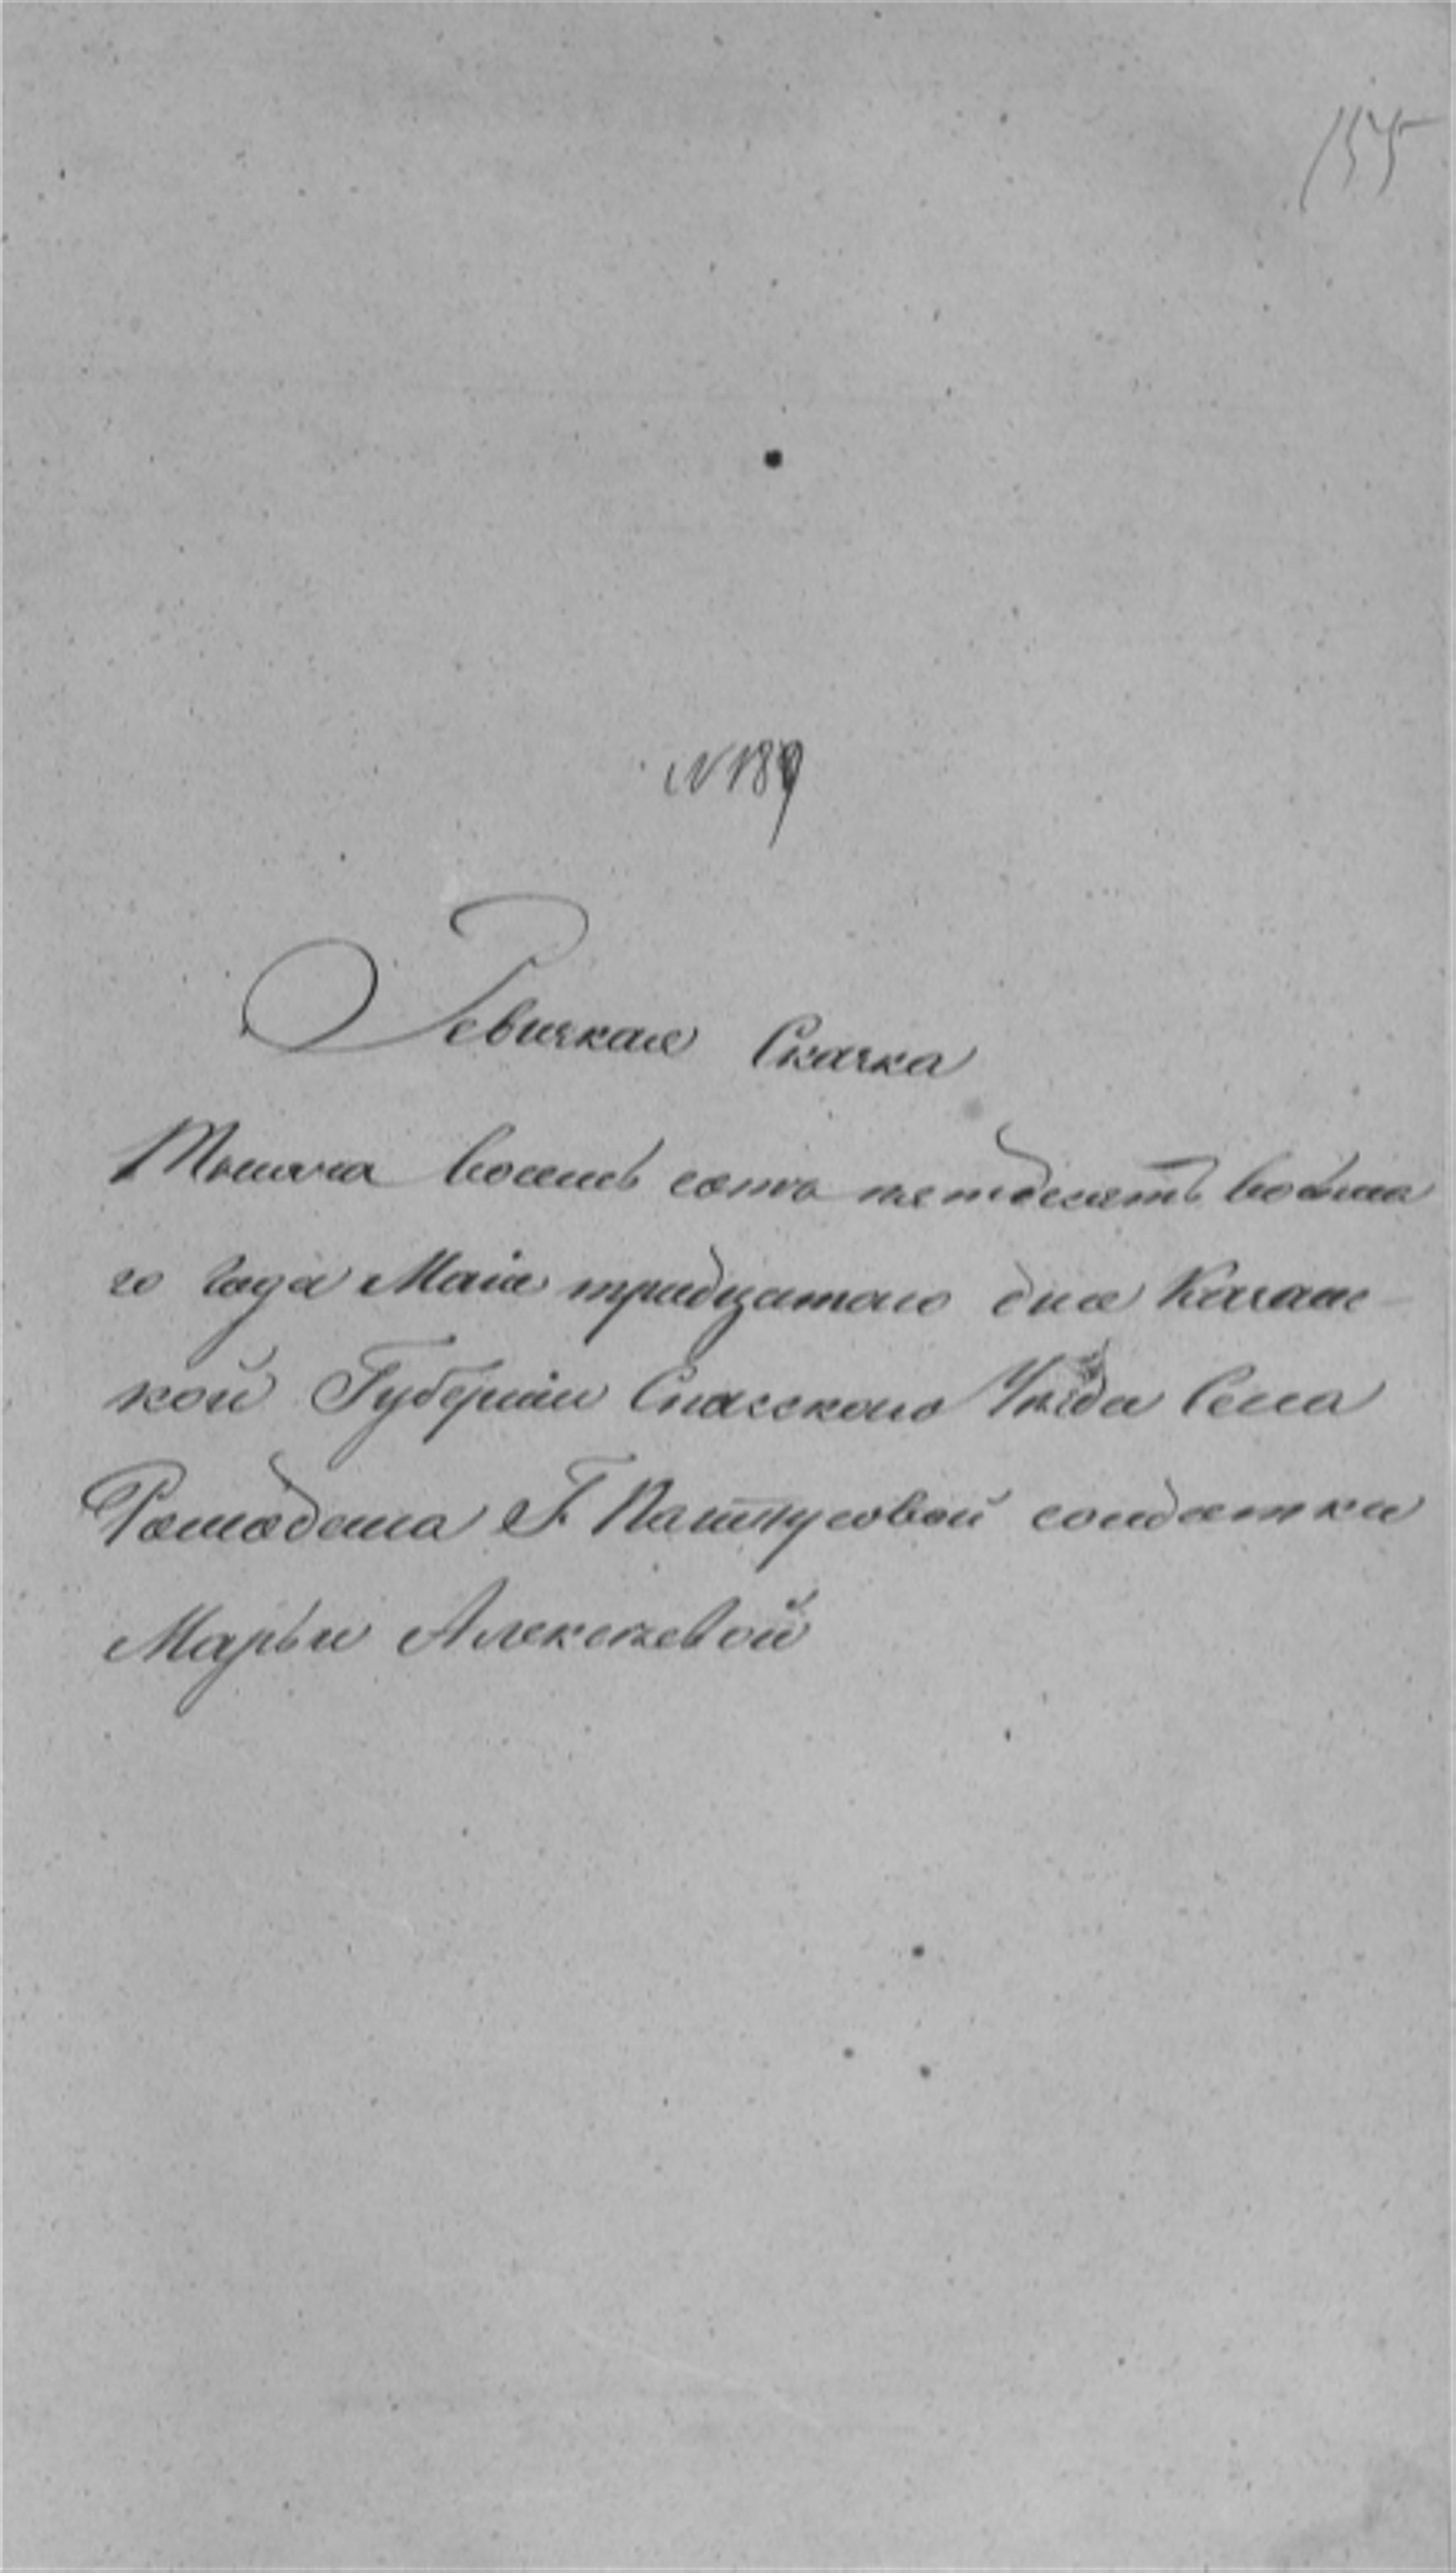 155
N 189
Ревизкая Сказка
Тысяча восемь сотъ пятдесятъ восьма
го Года Маія тридцатаго дня Казанс
кой Губерніи Спасскаго Уѣзда Села
Ромодана Г. солдатки
Марьи Алексѣевой